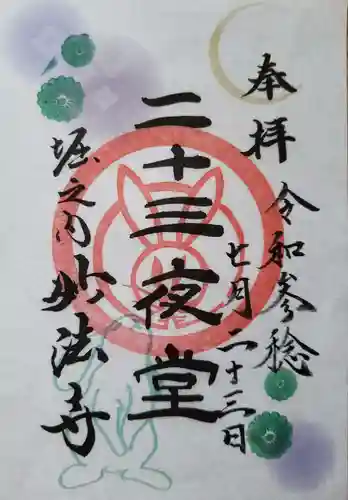 奉拝
令和参稔
七月二十三日
二十三夜堂
堀之内妙法寺